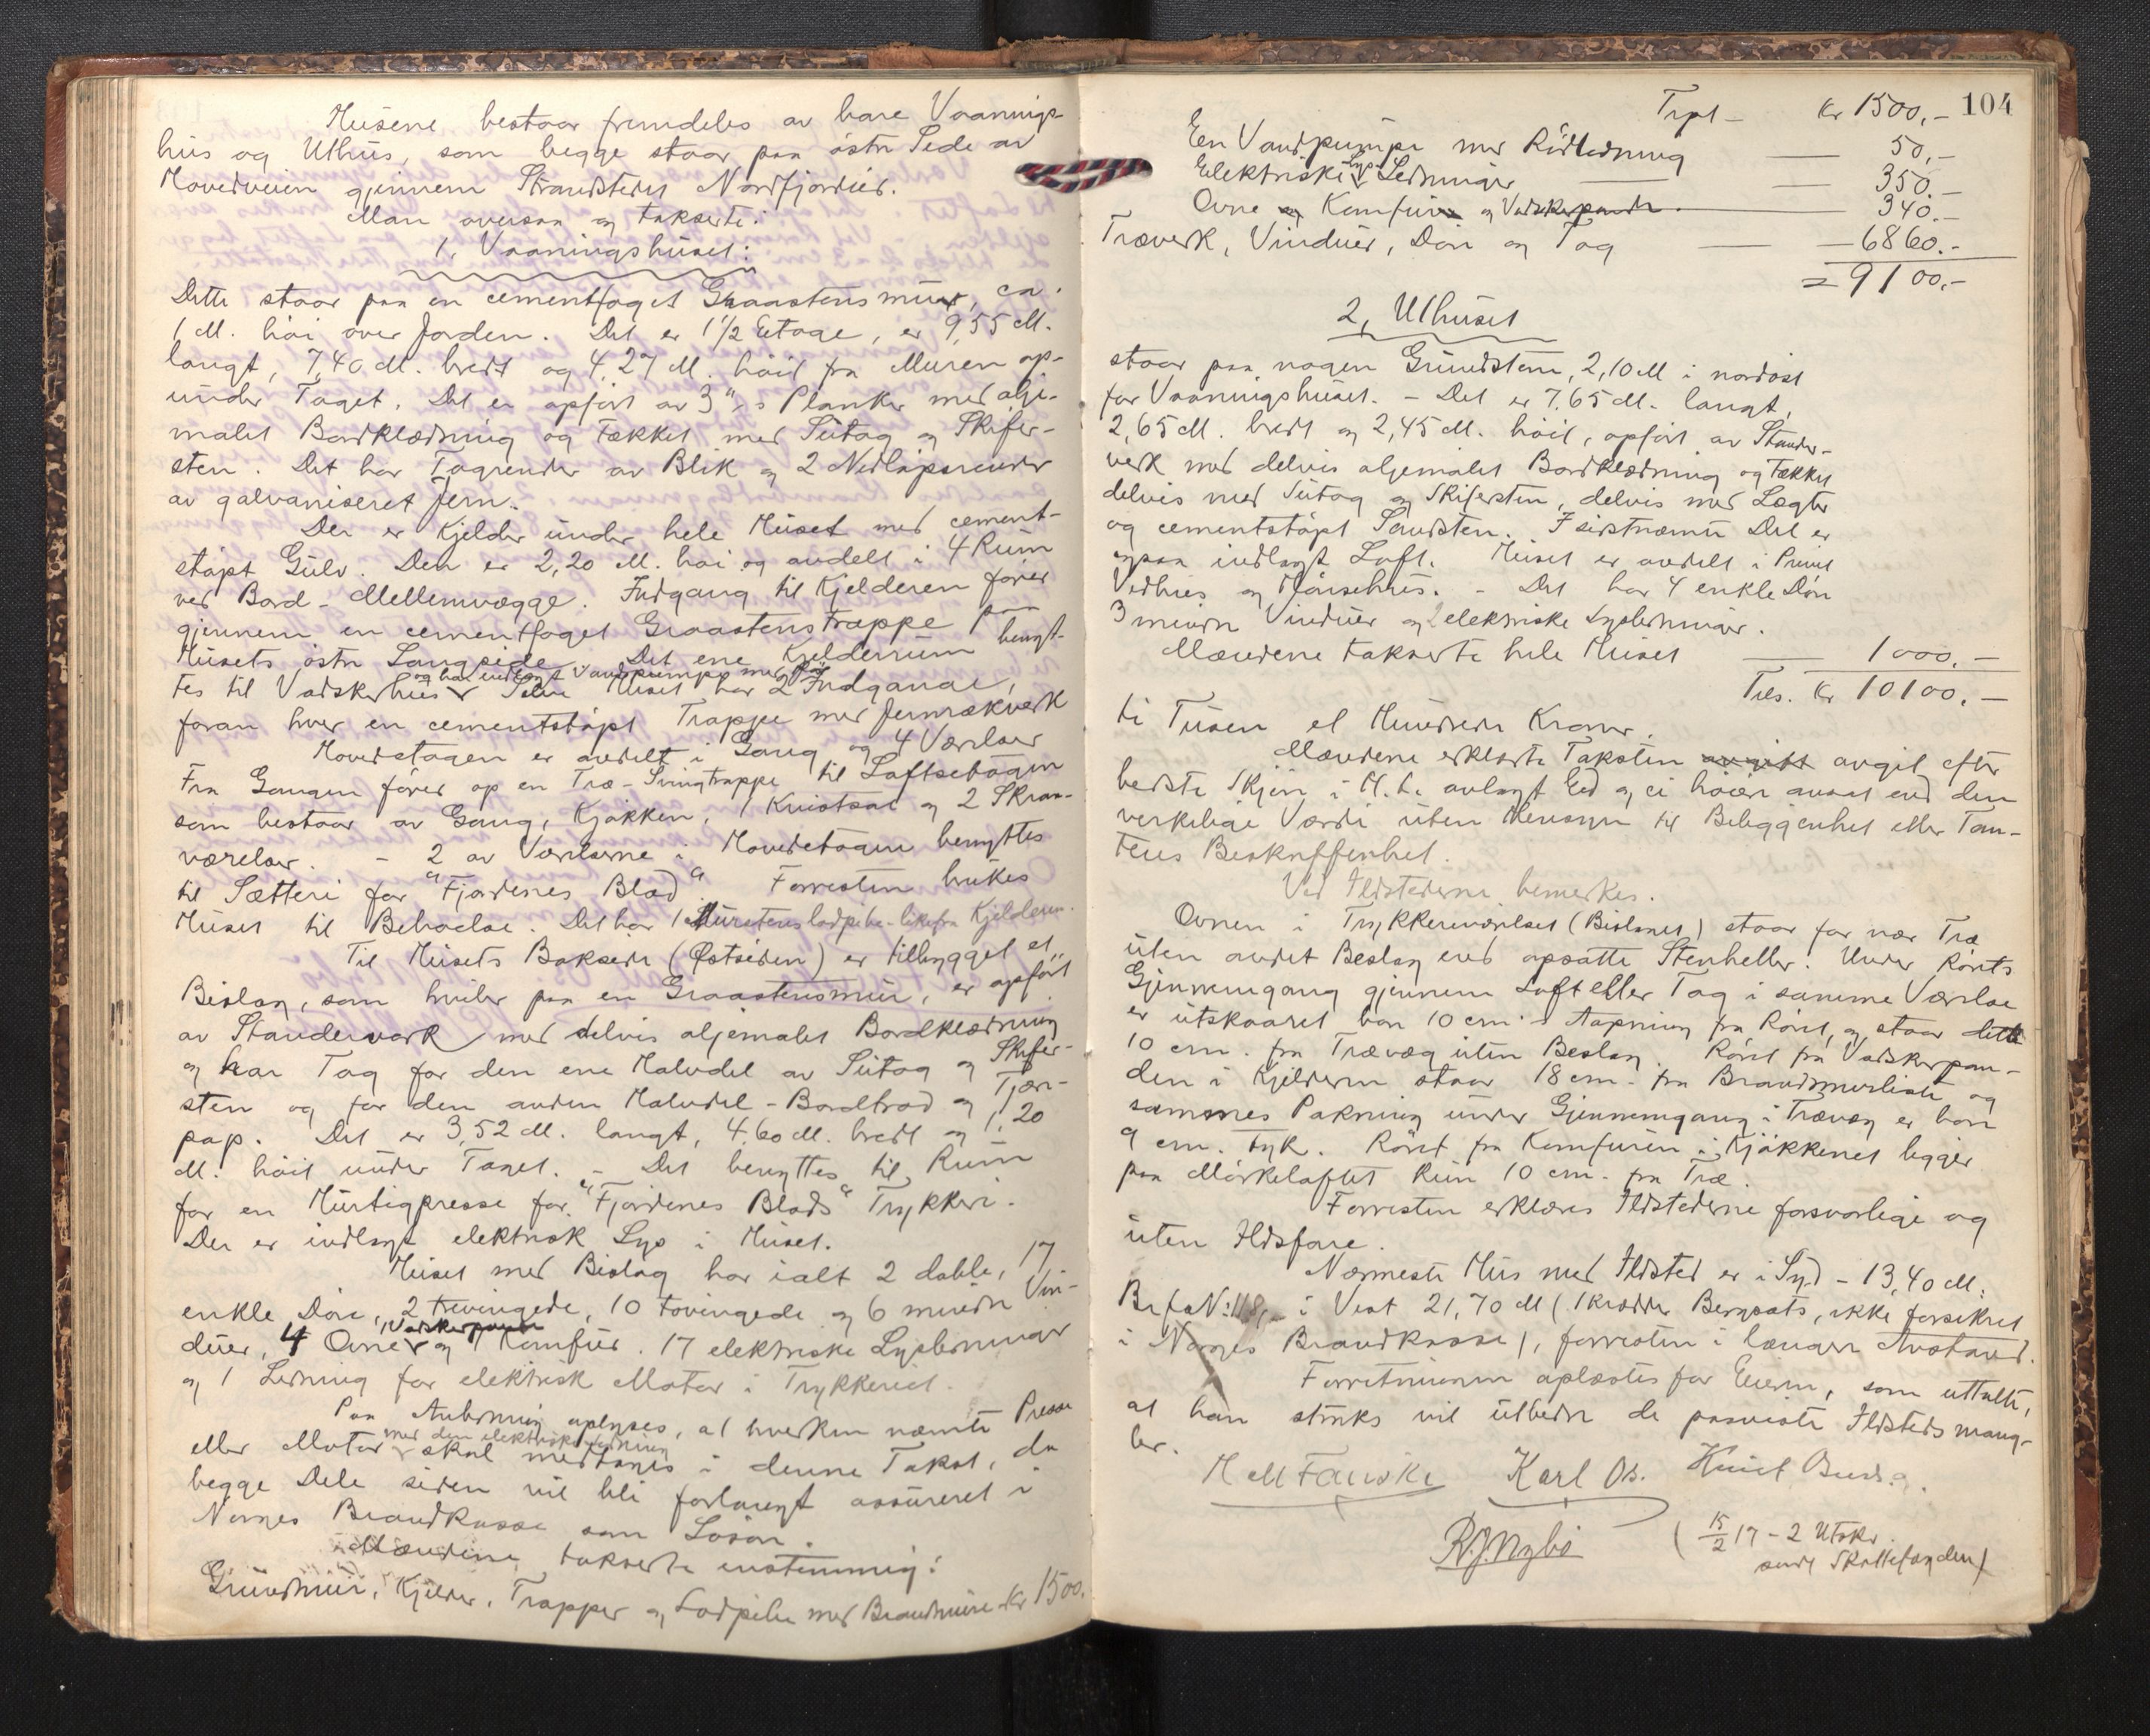 Husene bestaar fremdeles av bare Vaanings-
hus og Uthus, som begge staar paa östre Side av
Hovedveien gjennem Strandstedet Nordfjordeid.
Man overson og takserte:
1, Vaaningshuset:
Dette staar paa en cementfuget Graastensmur, ca.
1 M. höi over Jorden. Det er 1 1/2 Etage, er 9,55 M.
langt, 7,40 M. bredt og 4,27 M. höit fra Muren op-
under Taget. Det er opfört av 3"s Planker med olje-
malet Bordklædning og tækket med Sutag og Skifer-
sten. Det har Tagrender av Blik og 2 Nedlöpsrender
av galvaniseret Jern.
Der er Kjelder under hele Huset med cement-
stöpt Gulv. Den er 2,20 M. höi og avdelt i 4 Rum
ved Bord-Mellemvægge. Indgang til Kjelderen förer
gjennem en cementfuget Graastenstrappe paa
Husets östre Langside. Det ene Kjelderrum benyt-
og har indlagt Vandpumpe med Rör
tes til Vadskerhus. Selve Huset har 2 Indgange,
foran hver en cementstöpt Trappe med Jernrækverk
Hovedetagen er avdelt i Gang og 4 Værelser
Fra Gangen förer op en Træ-Svingtrappe til Loftsetagen
som bestaar av Gang, Kjökken, 1 Kvistsal og 2 Skraa-
værelser. - 2 av Værelserne i Hovedetagen benyttes
til Sætteri for "Fjordenes Blad" Forresten brukes
Huset til Beboelse. Det har 1 Murstens ladpibe like fra Kjelderen.
Til Husets Bakside (Östsiden) er tilbygget et
Bislag, som hviler paa en Graastensmur, er opfört
av Standerverk med delvis oljemalet Bordklædning
og har Tag for den ene Halvdel av Sutag og Skifer-
sten og for den anden Halvdel - Bordtrod og Tjære-
pap. Det er 3,52 M. langt, 4,60 M. bredt og 1,20
M. höit under Taget. - Det benyttes til Rum
for en Hurtigpresse for "Fjordenes Blads" Trykkeri.
Der er indlagt elektrisk Lys i Huset.
Huset med Bislag har ialt 2 doble, 17
enkle Döre, 2 trevingede, 10 tovingede og 6 mindre Vin-
1 Vadskerpande
duer, 4 Ovne og 1 Komfur. 17 elektriske Lysledninger
og 1 Ledning for elektrisk Motor i Trykkeriet.
Paa Anledning oplyses, at hverken nævnte Presse
med den elektriske Ledning
eller Motor skal medtages i denne Takst, da
begge Dele siden vil bli forlangt assureret i
Norges Brandkasse som Lösöre.
Mændene takserte enstemmig:
Grundmur, Kjelder, Trapper og Ladpibe med Brandmure Kr 1500.
104
Trpt - Kr 1500,-
En Vandpumpe med Rörledning — 50,-
Lys-
Elektriske Ledninger — 350.-
Ovne og Komfur og Vadskerpande. — 340.-
Træverk, Vinduer, Döre og Tag — 6860.-
= 9100,-
2, Uthuset
staar paa nogen Grundstene, 2,10 M i nordöst
for Vaaningshuset. - Det er 7,65 M. langt,
2,65 M. bredt og 2,45 M. höit, opfört av Stander-
verk med delvis oljemalet Bordklædning og tækket
delvis med Sutag og Skifersten, delvis med Lægter
og cementstöpt Tagsten. I sidstnævnte Del er
ogsaa indlagt Loft. Huset er avdelt i Privet
Vedhus og Hönsehus. - Det har 4 enkle Döre
3 mindre Vinduer og 2 elektriske Lysledninger.
Mændene takserte hele Huset — 1000.-
Tils. Kr 10100.-
ti Tusen et Hundrede Kroner.
Mændene erklærte Taksten avgitt avgit efter
bedste Skjön i H. t. avlagt Ed og ei höiere ansat end den
verkelige Værdi uten Hensyn til Beliggenhet eller Tom-
tens Beskaffenhet.
Ved Ildstederne bemerkes.
Ovnen i Trykkeriværelset (Bislaget) staar for nær Træ
uten andet Beslag end opsatte Stenheller. Under Rörets
Gjennemgang gjennem Loft eller Tag i samme Værelse
er utskaaret bare 10 cm's Aapning fra Röret, og staar dette
10 cm. fra Trævæg uten Beslag. Röret fra Vadskerpan-
den i Kjelderen staar 18 cm. fra Brandmurliste og
sammes Pakning under Gjennemgang i Trævæg er bare
9 cm. tyk. Röret fra Komfuren i Kjökkenet ligger
paa Mörkeloftet kun 10 cm. fra Træ.
Forresten erklæres Ildstederne forsvarlige og
uten Ildsfare.
Nærmeste Hus med Ildsted er i Syd - 13,40 M.
Br fa No 118, i Vest 21,70 M (Kræmmer Bergsets, ikke forsikret
i Norges Brandkasse), forresten i længere Avstand.
Forretningen oplæstes for Eieren, som uttalte,
at han straks vil utbedre de paaviste Ildstedsmang-
ler.
H M Fauske Karl Os. Knut Bud
R.J. Nybö
(15/2 17 - 2 Utskr.
sendt Skattefogden)